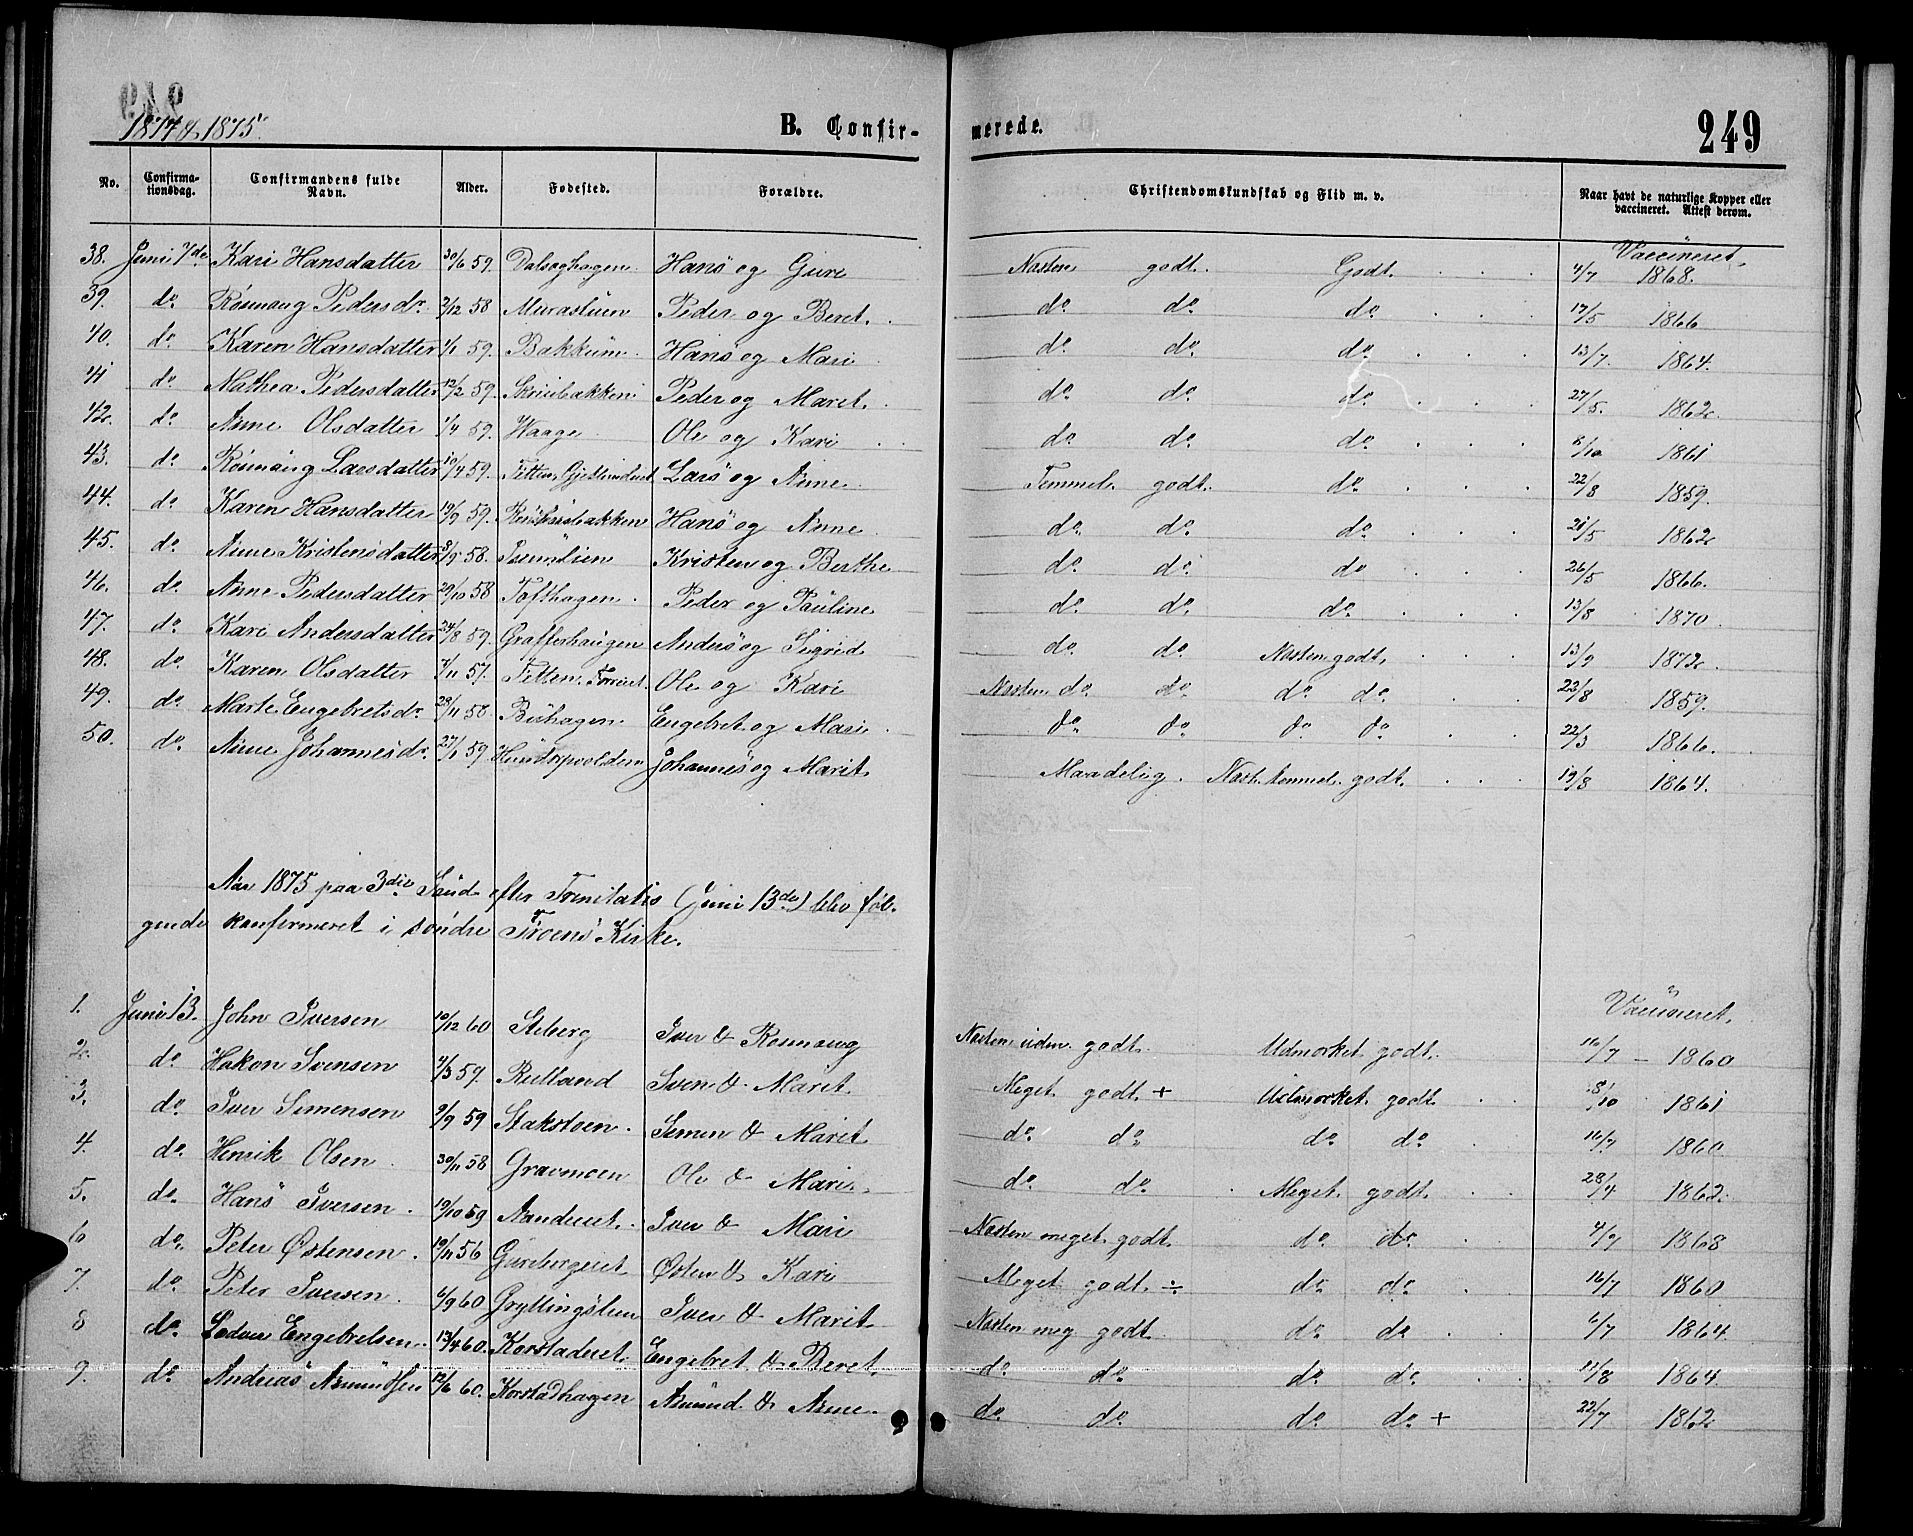 249
1874 & 1875.
B. Confirmerede.
No. Confirmationsdag. Confirmandens fulde Navn. Alder. Fødested. Forældre. Christendomskundskab og Flid m. v. Naar havt de naturlige Kopper eller vaccineret. Attest derom.
Vaccineret.
38. Juni 7de Kari Hansdatter 30/6 59. Hans og Guri Næsten godt. Godt. 4/7 1868.
39. do Rønnaug Pedersdr. 2/12 58 Peder og Beret. do do do 17/5 1866
40. do Karen Hansdatter 1/1 59. Bakkum. Hans og Mari do do do 13/7. 1864.
41 do Mathea Pedersdatter 12/2 59. Peder og Maret. do do do 27/5. 1862.
42. do Anne Olsdatter 1/4 59. Waage Ole og Kari do do do 8/10 1861
43. do Rønnaug Larsdatter 10/4 59. Lars og Anne Temmel. godt. do 22/8 1859.
44. do Karen Hansdatter 19/9 59. Hans og Anne do do do 21/5 1862
45. do Anne Kristensdatter 8/9 58. Kristen og Berthe do do do 26/5 1866.
46. do Anne Pedersdatter 20/10 58 Tofthagen. Peder og Pauline do do do 13/8 1870.
47. do Kari Andersdatter 24/8 59. Graffterhaugen Anders og Sigrid do do Næsten godt. 13/9 1872.
48. do Karen Olsdatter 7/11 57. Ole og Kari Næsten do do do do 22/8 1859.
49. do Marte Engebretsdr. 28/11 58. Buhagen. Engebret og Mari do do do do 22/3 1866.
50. do Anne Johannesdr. 27/1 59 Johannes og Marit Maadelig. Næst. temmel. godt. 19/8 1864.
Aar 1875 paa 3die Sønd. efter Trinitatis (Juni 13de) blev føl-
gende konfirmeret i søndre Froens Kirke.
Vaccineret.
1. Juni 13. John Iversen 10/12 60 Steberg Iver & Rønnaug Næsten udm. godt. Udmærket godt. 16/7 – 1860
2. do Hakon Svensen 4/3 59. Rulland Sven & Maret Meget godt + Udmærket godt. 8/10 1861
3. do Iver Simensen 9/9 59 Stakstoen. Simen & Marit do do do do 16/7 1860
4. do Henrik Olsen 30/11 58 Gravmoen Ole & Mari. do do Meget godt. 28/4 1862.
5. do Hans Iversen. 19/10 59 Iver & Mari Næsten meget godt do do 4/7 1868
6 do Peter Østensen. 10/11 56 Østen & Kari Meget godt ÷ do do 16/7 1860
7. do Peter Iversen. 6/9 60 Gryttingslien Iver & Marit Næsten meg. godt do do 6/7 1864
8 do Engebretsen. 13/4 60. Engebret & Beret. do do do do 11/8 1864.
9. do Andreas Asmundsen 12/6 60. Korstadhagen Asmund & Anne do do do do + 22/7 1862